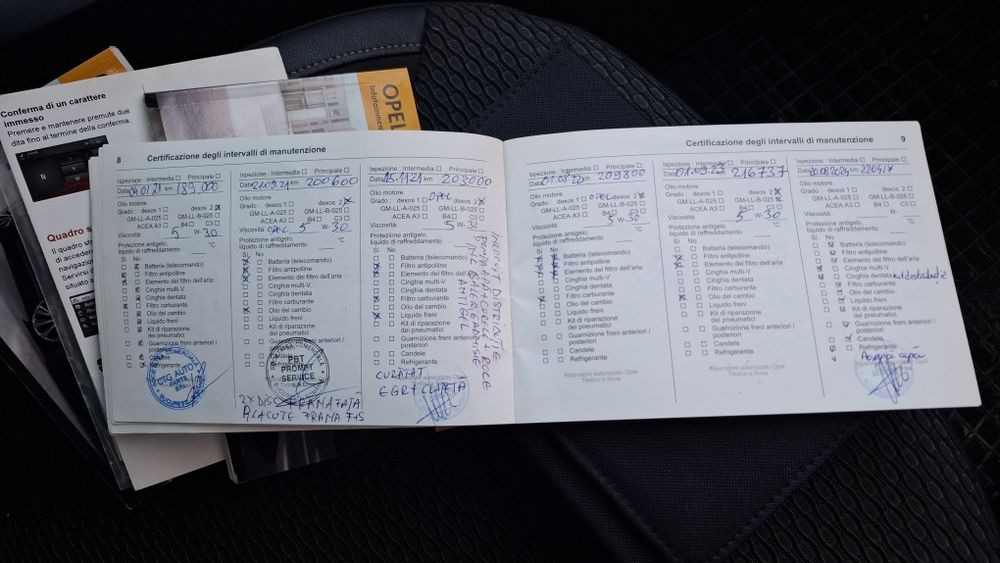 Conferma di un carattere
immesso
Premere e mantenere premute due
dita fino al termine della conferma.
N
Quadro
OPEL
Infotainment
8 Certificazione degli intervalli di manutenzione
Ispezione : Intermedia ☐ Principale ☐
Data 04.01.21 km 189 000
Olio motore
Grado : dexos 1 ☐ dexos 2 ☒
GM-LL-A-025 ☐ GM-LL-B-025 ☐
ACEA A3 ☐ B4 ☐ C3 ☐
Viscosità 5 W- 30
Protezione antigelo, °C
liquido di raffreddamento
Sì No
Batteria (telecomando)
Filtro antipolline
Elemento del filtro dell'aria
Cinghia multi-V
Cinghia dentata
Filtro carburante
Olio del cambio
Liquido freni
Kit di riparazione
dei pneumatici
Guarnizione freni anteriori /
posteriori
Candele
Refrigerante
CTG AUTO
PARTS
SRL
BUCUREȘTI
Ispezione : Intermedia ☐ Principale ☐
Data 21.09.21 km 202600
Olio motore
Grado : dexos 1 ☐ dexos 2 ☒
GM-LL-A-025 ☐ GM-LL-B-025 ☐
ACEA A3 ☐ B4 ☐ C3 ☐
Viscosità OPEL 5 W- 30
Protezione antigelo, °C
liquido di raffreddamento
Sì No
Batteria (telecomando)
Filtro antipolline
Elemento del filtro dell'aria
Cinghia multi-V
Cinghia dentata
Filtro carburante
Olio del cambio
Liquido freni
Kit di riparazione
dei pneumatici
Guarnizione freni anteriori /
posteriori
Candele
Refrigerante
PBT
PROMPT
SERVICE
2X DISC FRANA FATA
PLACUTE FRANA F+S
Ispezione : Intermedia ☐ Principale ☐
Data 15.11.21 km 203000
Olio motore OPEL
Grado : dexos 1 ☐ dexos 2 ☒
GM-LL-A-025 ☐ GM-LL-B-025 ☐
ACEA A3 ☐ B4 ☐ C3 ☐
Viscosità 5 W- 30
Protezione antigelo, °C
liquido di raffreddamento
Sì No
Batteria (telecomando)
Filtro antipolline
Elemento del filtro dell'aria
Cinghia multi-V
Cinghia dentata
Filtro carburante
Olio del cambio
Liquido freni
Kit di riparazione
dei pneumatici
Guarnizione freni anteriori /
posteriori
Candele
Refrigerante
Riparatore autorizzato Opel
CURATAT
EGR/CLAPETA
DISTRIBUTIE
POMPA APA + CUREA + ROLE
ANTIGEL
Certificazione degli intervalli di manutenzione 9
Ispezione : Intermedia ☐ Principale ☐
Data 01.08.22 km 209800
Olio motore OPEL
Grado : dexos 1 ☐ dexos 2 ☒
GM-LL-A-025 ☐ GM-LL-B-025 ☐
ACEA A3 ☐ B4 ☐ C3 ☐
Viscosità 5 W- 30
Protezione antigelo, °C
liquido di raffreddamento
Sì No
Batteria (telecomando)
Filtro antipolline
Elemento del filtro dell'aria
Cinghia multi-V
Cinghia dentata
Filtro carburante
Olio del cambio
Liquido freni
Kit di riparazione
dei pneumatici
Guarnizione freni anteriori /
posteriori
Candele
Refrigerante
Riparatore autorizzato Opel
Timbro e firma
Ispezione : Intermedia ☐ Principale ☐
Data 01.09.23 km 216737
Olio motore
Grado : dexos 1 ☐ dexos 2 ☒
GM-LL-A-025 ☐ GM-LL-B-025 ☒
ACEA A3 ☐ B4 ☐ C3 ☐
Viscosità 5 W- 30
Protezione antigelo, °C
liquido di raffreddamento
Sì No
Batteria (telecomando)
Filtro antipolline
Elemento del filtro dell'aria
Cinghia multi-V
Cinghia dentata
Filtro carburante
Olio del cambio
Liquido freni
Kit di riparazione
dei pneumatici
Guarnizione freni anteriori /
posteriori
Candele
Refrigerante
Riparatore autorizzato Opel
Timbro e firma
Ispezione : Intermedia ☐ Principale ☐
Data 20.08.2024 km 220417
Olio motore
Grado : dexos 1 ☐ dexos 2 ☐
GM-LL-A-025 ☐ GM-LL-B-025 ☐
ACEA A3 ☐ B4 ☐ C3 ☐
Viscosità 5 W- 30
Protezione antigelo, °C
liquido di raffreddamento
Sì No
Batteria (telecomando)
Filtro antipolline
Elemento del filtro dell'aria
Cinghia multi-V
Cinghia dentata kit distributie
Filtro carburante
Olio del cambio
Liquido freni
Kit di riparazione
dei pneumatici
Guarnizione freni anteriori /
posteriori
Candele
Refrigerante